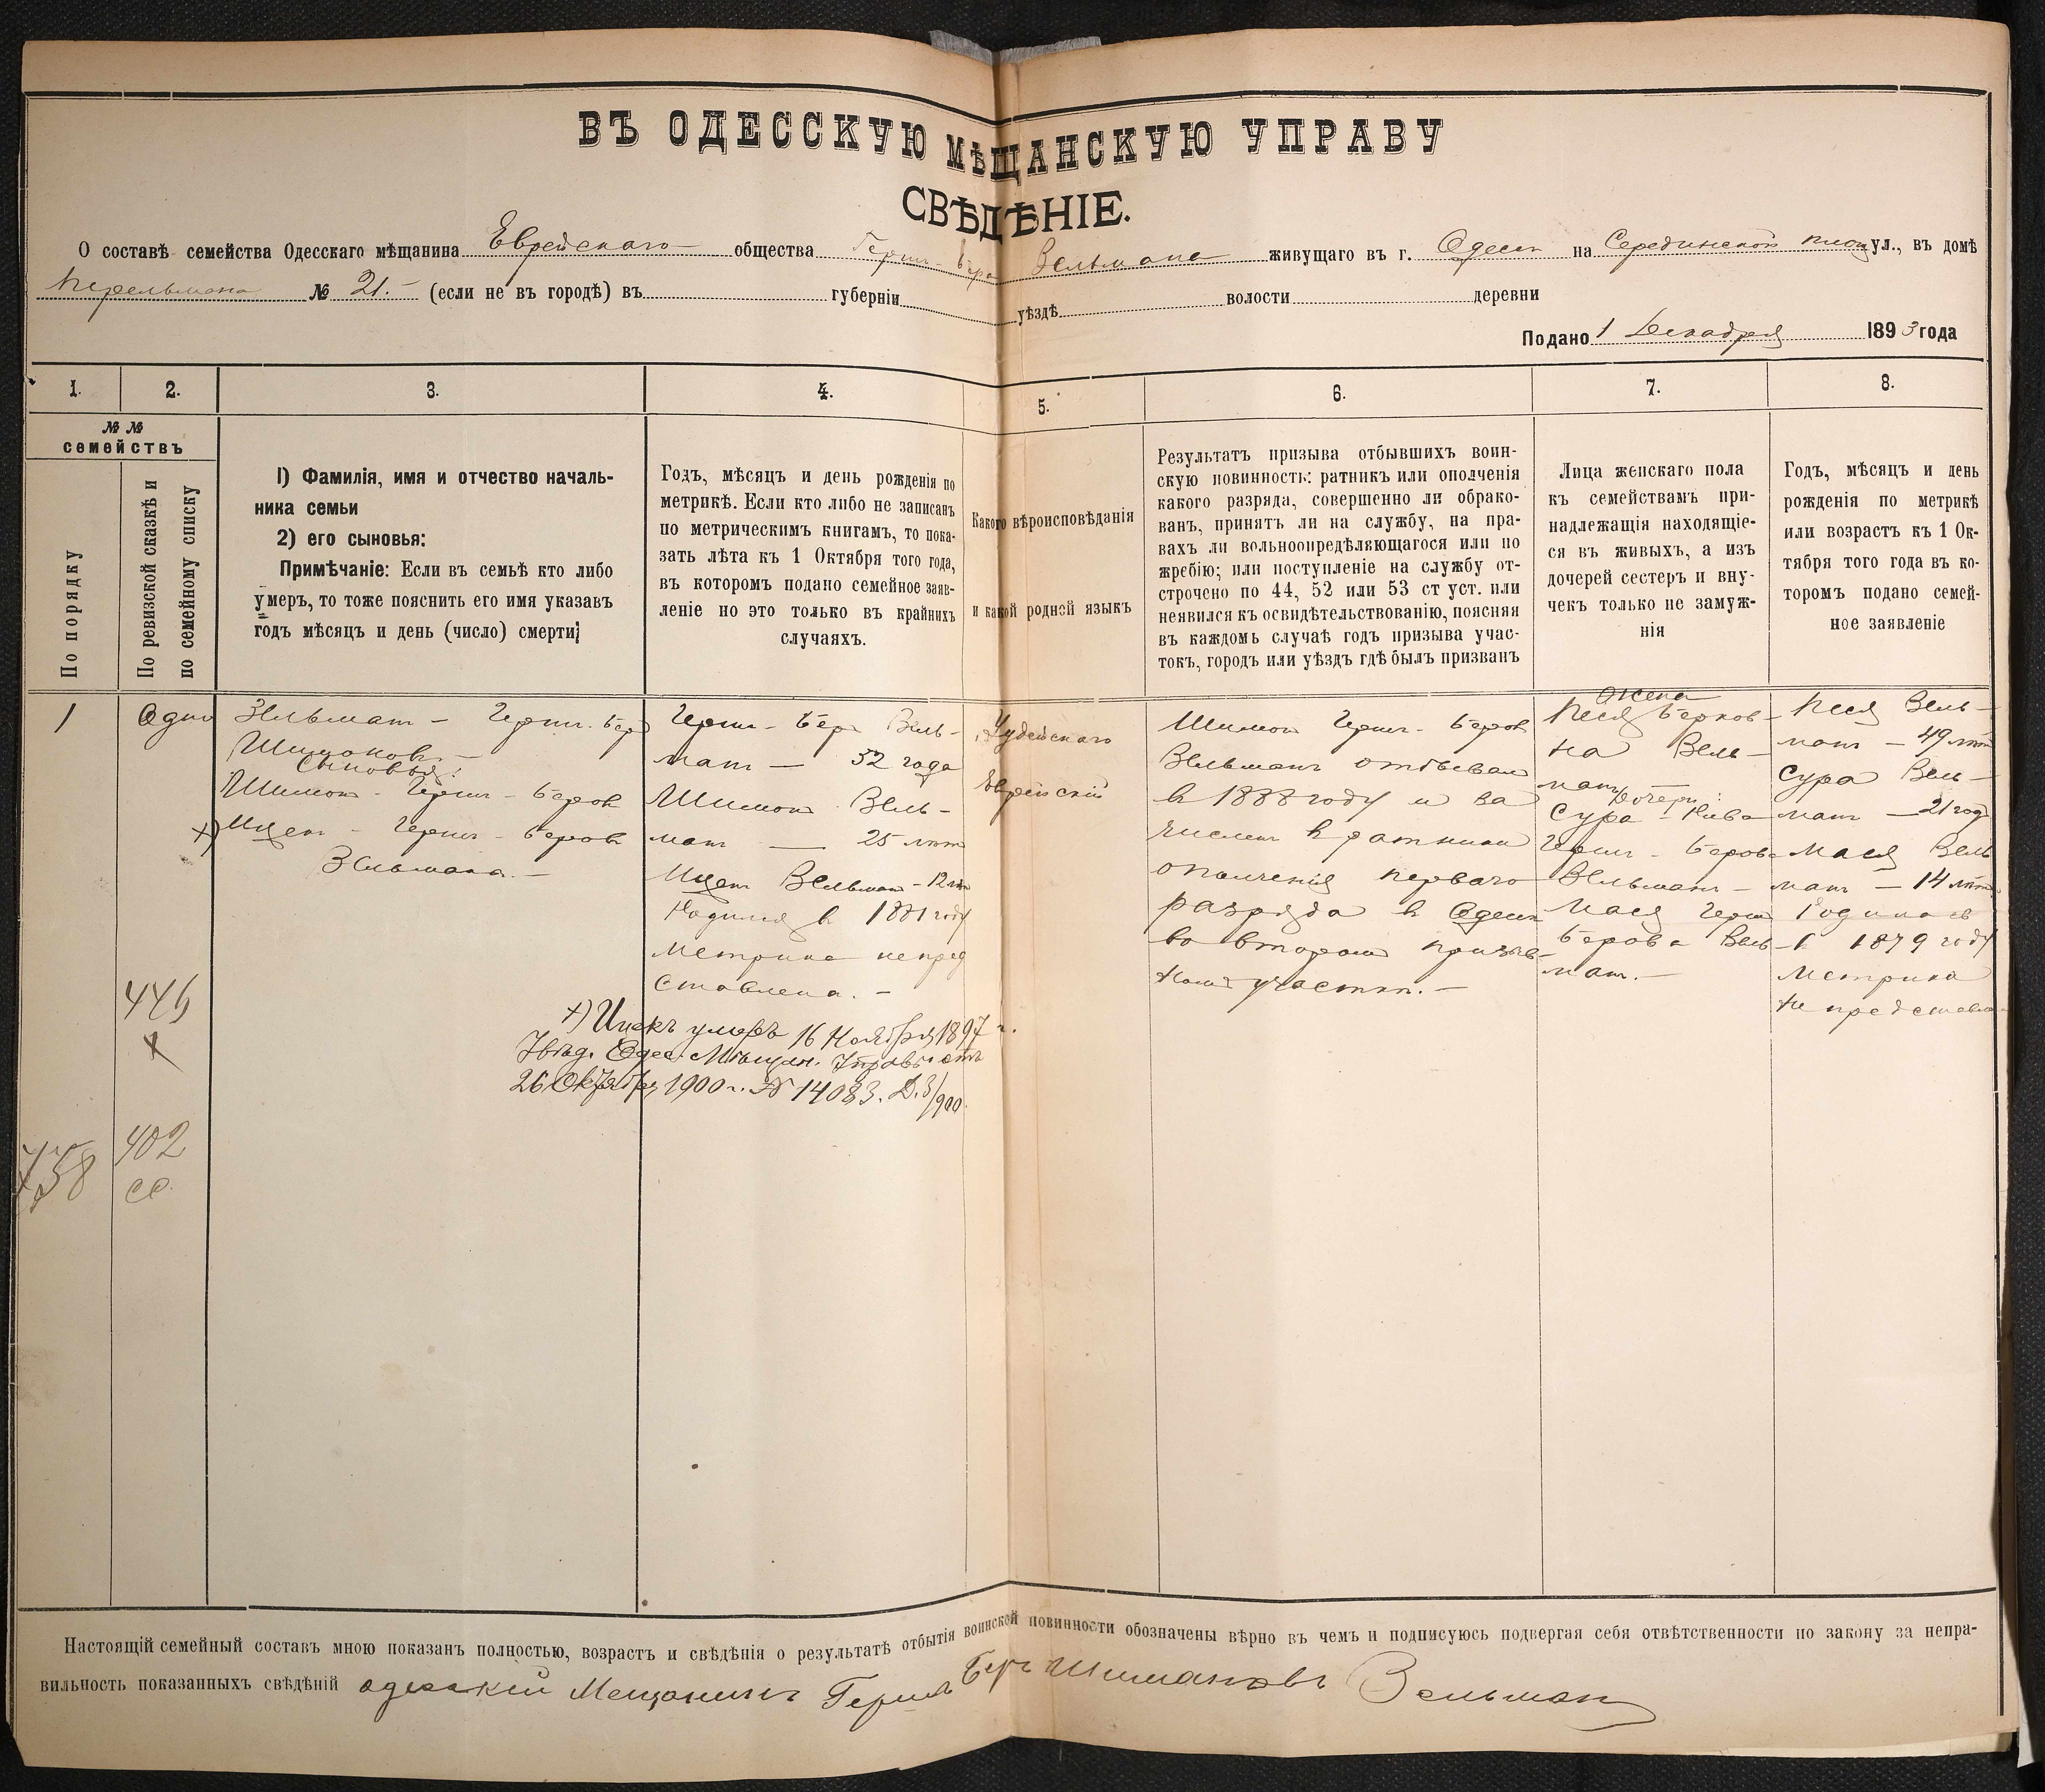 ВЪ ОДЕССКУЮ МѢЩАНСКУЮ УПРАВУ
СВѢДѢНІЕ.
О составѣ семейства Одесскаго мѣщанина Еврейскаго общества Герш-Бера Зельмана живущаго въ г. Одессѣ на Серединской площ ул., въ домѣ
Перельмана № 21.- (если не въ городѣ) въ губерніи уѣздѣ волости деревни
Подано 1 Декабря 1893 года
1.
2.
3.
4.
5.
6.
7.
8.
№ №
семействъ
По порядку
По ревизской сказкѣ и
по семейному списку
1) Фамилія, имя и отчество началь-
ника семьи
2) его сыновья:
Примѣчаніе: Если въ семьѣ кто либо
умеръ, то тоже пояснить его имя указавъ
годъ мѣсяцъ и день (число) смерти;
Годъ, мѣсяцъ и день рожденія по
метрикѣ. Если кто либо не записанъ
по метрическимъ книгамъ, то пока-
зать лѣта къ 1 Октября того года,
въ которомъ подано семейное заяв-
леніе но это только въ крайнихъ
случаяхъ.
Какого вѣроисповѣданія
и какой родной языкъ
Результатъ призыва отбывшихъ воин-
скую повинность: ратникъ или ополченія
какого разряда, совершенно ли обрако-
ванъ, принятъ ли на службу, на пра-
вахъ ли вольноопредѣляющагося или по
жребію; или поступленіе на службу от-
строчено по 44, 52 или 53 ст уст. или
неявился къ освидѣтельствованію, поясняя
въ каждомъ случаѣ годъ призыва учас-
токъ, городъ или уѣздъ гдѣ былъ призванъ
Лица женскаго пола
къ семействамъ при-
надлежащія находящіе-
ся въ живыхъ, а изъ
дочерей сестеръ и вну-
чекъ только не замуж-
нія
Годъ, мѣсяцъ и день
рожденія по метрикѣ
или возрастъ къ 1 Ок-
тября того года въ ко-
торомъ подано семей-
ное заявленіе
1
Одно
Зельман - Герш-Бер
Шимонов -
Сыновья:
Шимон - Герш - Беров
+) Ицек - Герш - Беров
Зельмана. -
446
х
402
сс.
758
Герш-Бер Зель-
ман — 52 года
Шимон Зель-
ман — 25 лѣт
Ицек Зельман - 12 лѣт
Родился в 1881 году
Метрика непред
ставлена. -
+) Ицекъ умеръ 16 Ноября 1897 г.
Увѣд. Одес. Мѣщан. Управы отъ
26 Октября 1900 г. № 14083. Д. 3/900.
Іудейскаго
Еврейскій
Шимон Герш-Беров
Зельманъ отбывал
в 1888 году и за
числен в ратники
ополченія перваго
разряда в Одессѣ
во втором призыв-
ном участкѣ. -
жена
Песя Берков-
на Зель-
ман
дочери:
Сура - Хива
Герш - Берова
Зельман -
Мася Герш
Берова Зель-
ман. -
Песя Зель-
ман - 49 лѣт
Сура Зель-
ман - 21 год
Мася Зель
ман - 14 лѣт.
Родилась
в 1879 году
Метрика
не представлена
Настоящій семейный составъ мною показанъ полностью, возрастъ и свѣдѣнія о результатѣ отбытія воинской повинности обозначены вѣрно въ чемъ и подписуюсь подвергая себя отвѣтственности по закону за непра-
вильность показанныхъ свѣдѣній одесскій Мещанинъ Гершъ Беръ Шимановъ Зельман